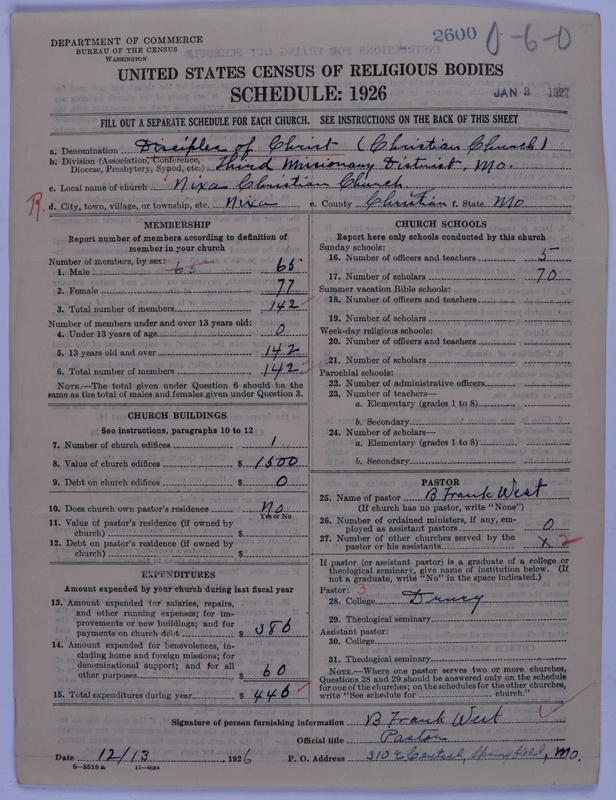 2600 0-6-0
DEPARTMENT OF COMMERCE
BUREAU OF THE CENSUS
WASHINGTON
UNITED STATES CENSUS OF RELIGIOUS BODIES
SCHEDULE: 1926
JAN 3 1927
FILL OUT A SEPARATE SCHEDULE FOR EACH CHURCH. SEE INSTRUCTIONS ON THE BACK OF THIS SHEET
a. Denomination Disciples of Christ (Christian Church)
b. Division (Association, Conference, Diocese, Presbytery, Synod, etc.) Third Missionary District, Mo.
c. Local name of church Nixa Christian Church
R. d. City, town, village, or township, etc. Nixa e. County Christian f. State Mo.
MEMBERSHIP
Report number of members according to definition of
member in your church
Number of members, by sex:
1. Male 65 65
2. Female 77
3. Total number of members 142
Number of members under and over 13 years old:
4. Under 13 years of age 0
5. 13 years old and over 142
6. Total number of members 142
NOTE.—The total given under Question 6 should be
same as the total of males and females given under Question 3.
CHURCH BUILDINGS
See instructions, paragraphs 10 to 12
7. Number of church edifices 1
8. Value of church edifices $ 1500
9. Debt on church edifices $ 0
10. Does church own pastor's residence No
Yes or No
11. Value of pastor's residence (if owned by
church) $
12. Debt on pastor's residence (if owned by
church) $
EXPENDITURES
Amount expended by your church during last fiscal year
13. Amount expended for salaries, repairs,
and other running expenses; for im-
provements or new buildings; and for
payments on church debt $ 386
14. Amount expended for benevolences, in-
cluding home and foreign missions; for
denominational support; and for all
other purposes $ 60
15. Total expenditures during year $ 446
CHURCH SCHOOLS
Report here only schools conducted by this church
Sunday schools:
16. Number of officers and teachers 5
17. Number of scholars 70
Summer vacation Bible schools:
18. Number of officers and teachers
19. Number of scholars
Week-day religious schools:
20. Number of officers and teachers
21. Number of scholars
Parochial schools:
22. Number of administrative officers
23. Number of teachers—
a. Elementary (grades 1 to 8)
b. Secondary
24. Number of scholars—
a. Elementary (grades 1 to 8)
b. Secondary
PASTOR
25. Name of pastor B Frank West
(If church has no pastor, write "None")
26. Number of ordained ministers, if any, em-
ployed as assistant pastors 0
27. Number of other churches served by the
pastor or his assistants x 2
If pastor (or assistant pastor) is a graduate of a college or
theological seminary, give name of institution below. (If
not a graduate, write "No" in the space indicated.)
Pastor: 3
28. College Drury
29. Theological seminary
Assistant pastor:
30. College
31. Theological seminary
NOTE.—Where one pastor serves two or more churches,
Questions 28 and 29 should be answered only on the schedule
for one of the churches; on the schedules for the other churches,
write "See schedule for church."
Signature of person furnishing information B Frank West
Official title Pastor
Date 12/13, 1926 P. O. Address 310 E Central, Springfield, Mo.
6—5518 a 11—9664